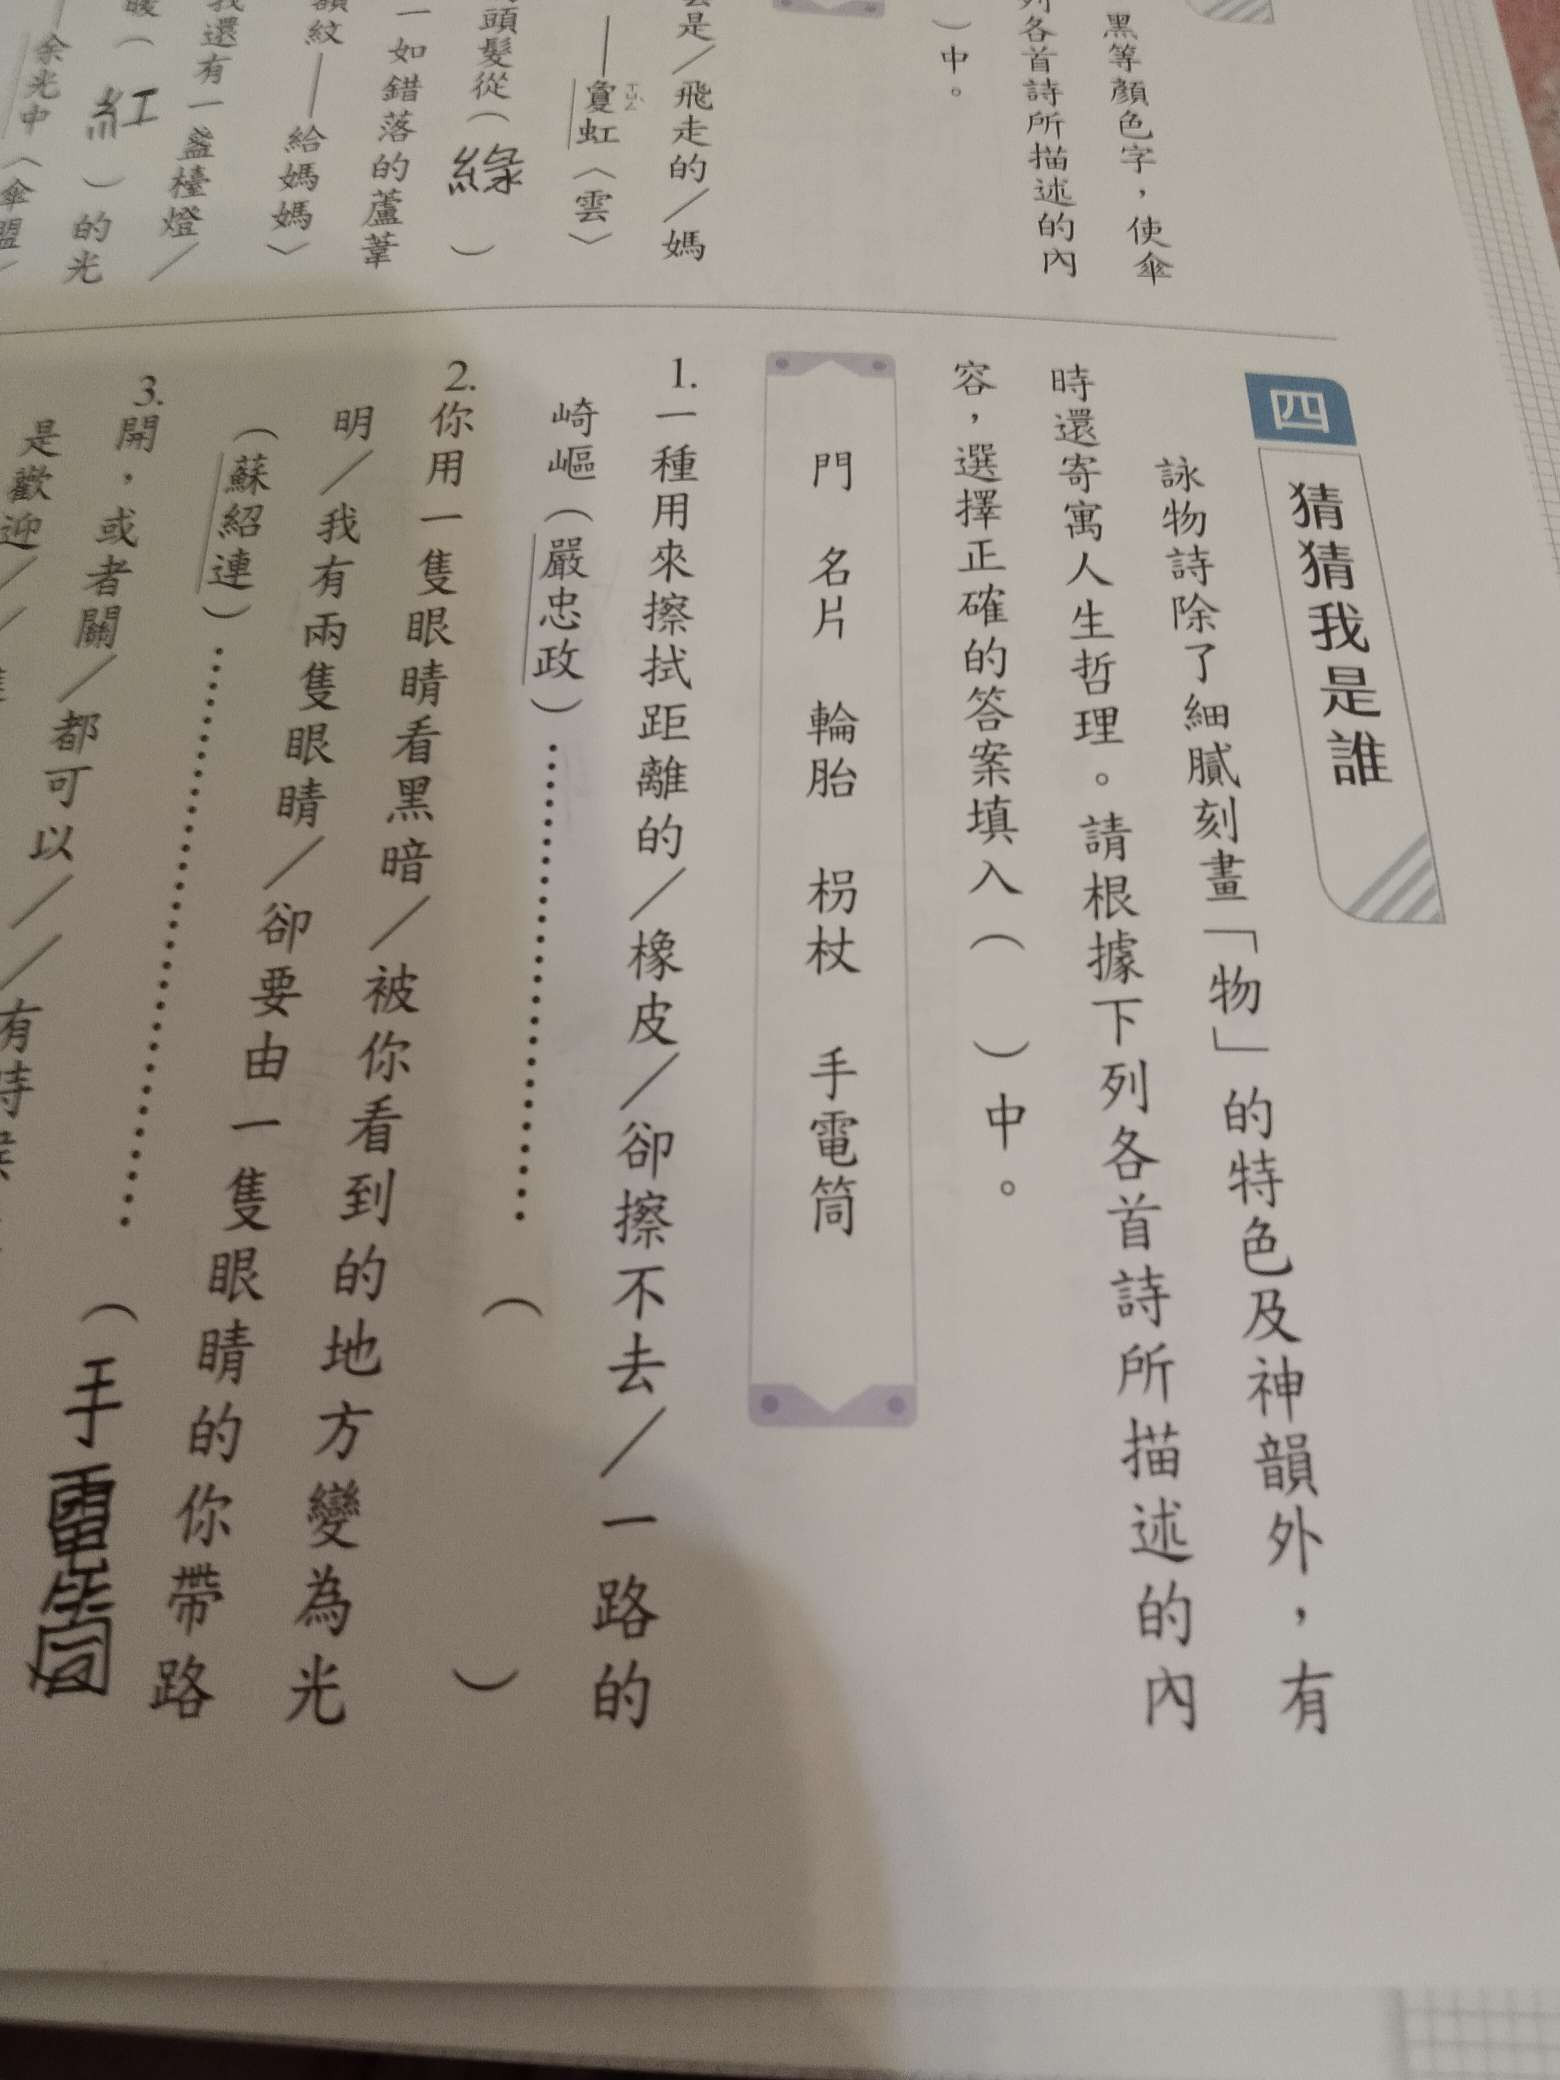 黑等顏色字，使傘
列各首詩所描述的內
）中。
是／飛走的／媽
——敻虹〈雲〉
ㄒㄩㄥˋ
頭髮從（綠）
一如錯落的蘆葦
額紋——給媽媽〉
我還有一盞檯燈／
暖（紅）的光
余光中〈傘盟
四
猜猜我是誰
詠物詩除了細膩刻畫「物」的特色及神韻外，有
時還寄寓人生哲理。請根據下列各首詩所描述的內
容，選擇正確的答案填入（　）中。
門　名片　輪胎　枴杖　手電筒
1.一種用來擦拭距離的／橡皮／卻擦不去／一路的
崎嶇（嚴忠政）……………………（　）
2.你用一隻眼睛看黑暗／被你看到的地方變為光
明／我有兩隻眼睛／卻要由一隻眼睛的你帶路
（蘇紹連）……………………（手電筒
3.開，或者關／都可以／／有時候
是歡迎／